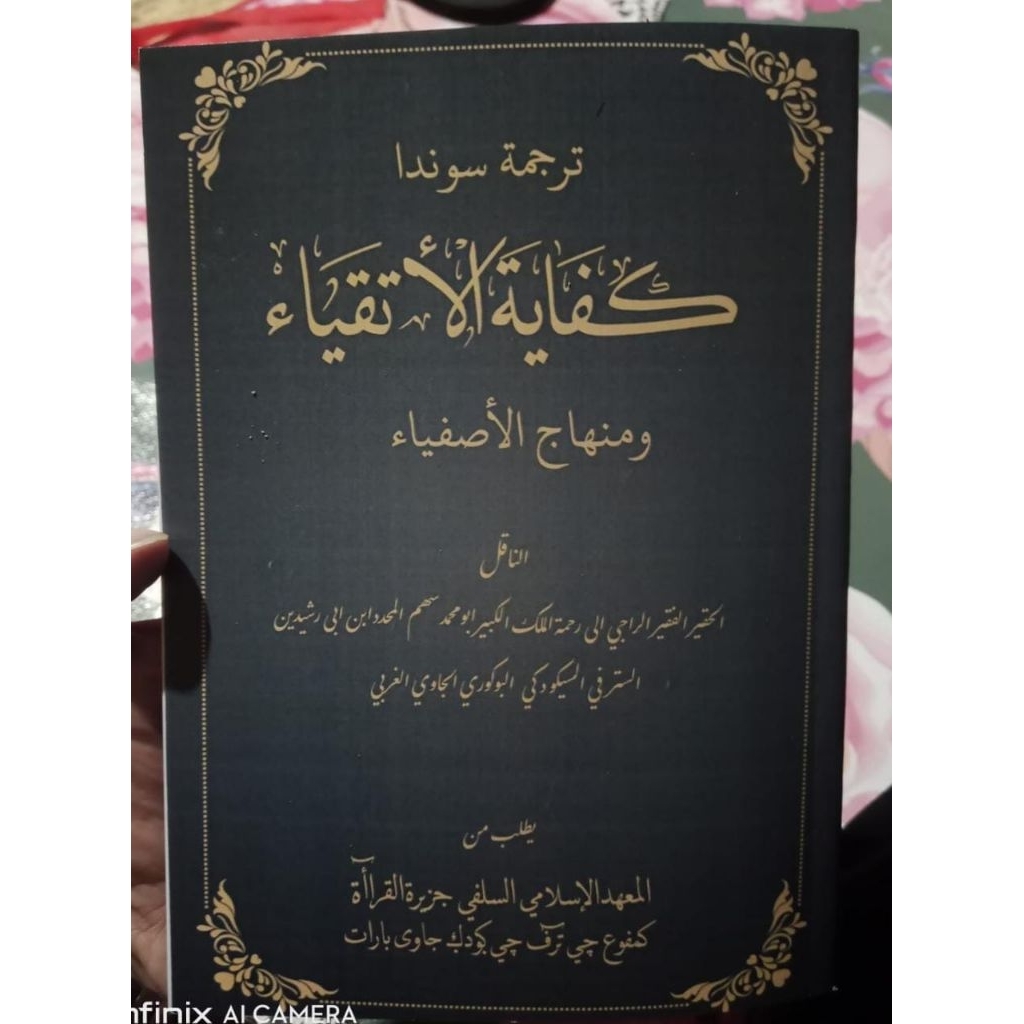 ترجمة سوندا
كفاية الأتقياء
ومنهاج الأصفياء
الناقل
الحقير الفقير الراجي الى رحمة الملك الكبير ابو محمد سهم المحدد ابن ابي رشيدين
في السيكودكي البوكوري الجاوي الغربي
يطلب من
المعهد الإسلامي السلفي جزيرة القرأأة
كمفوع چي ترف چي كودك جاوى بارات
nfinix AI CAMERA